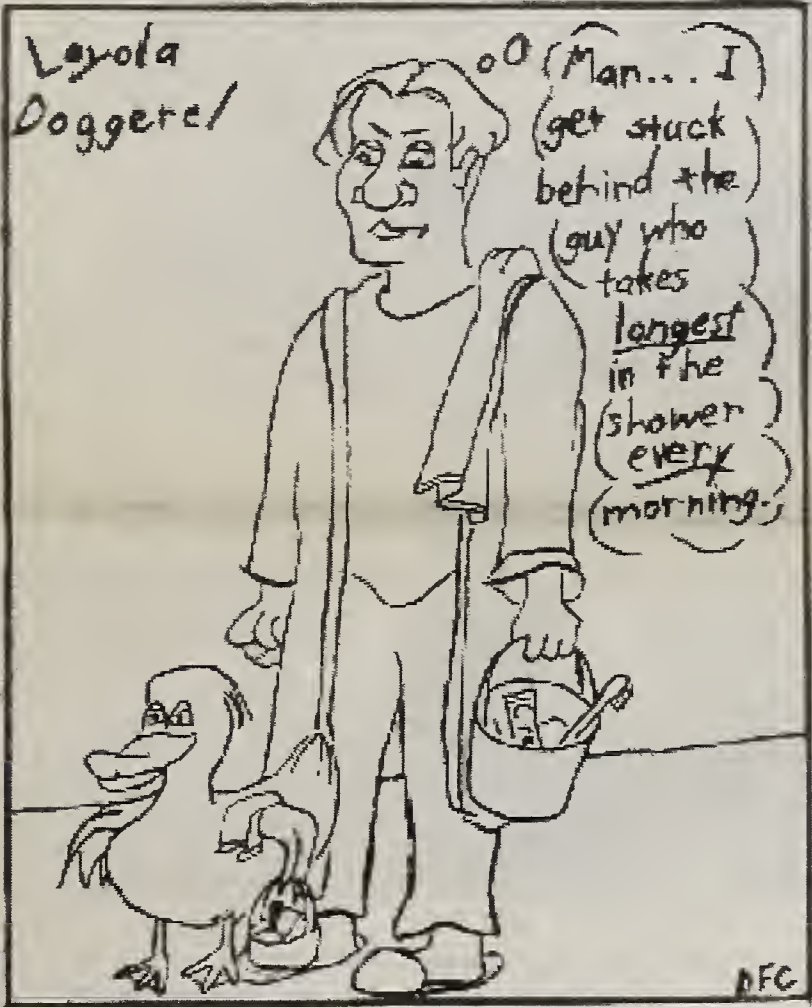 Loyola
Doggerel
Man... I
get stuck
behind the
guy who
takes
longest
in the
shower
every
morning.
DFC